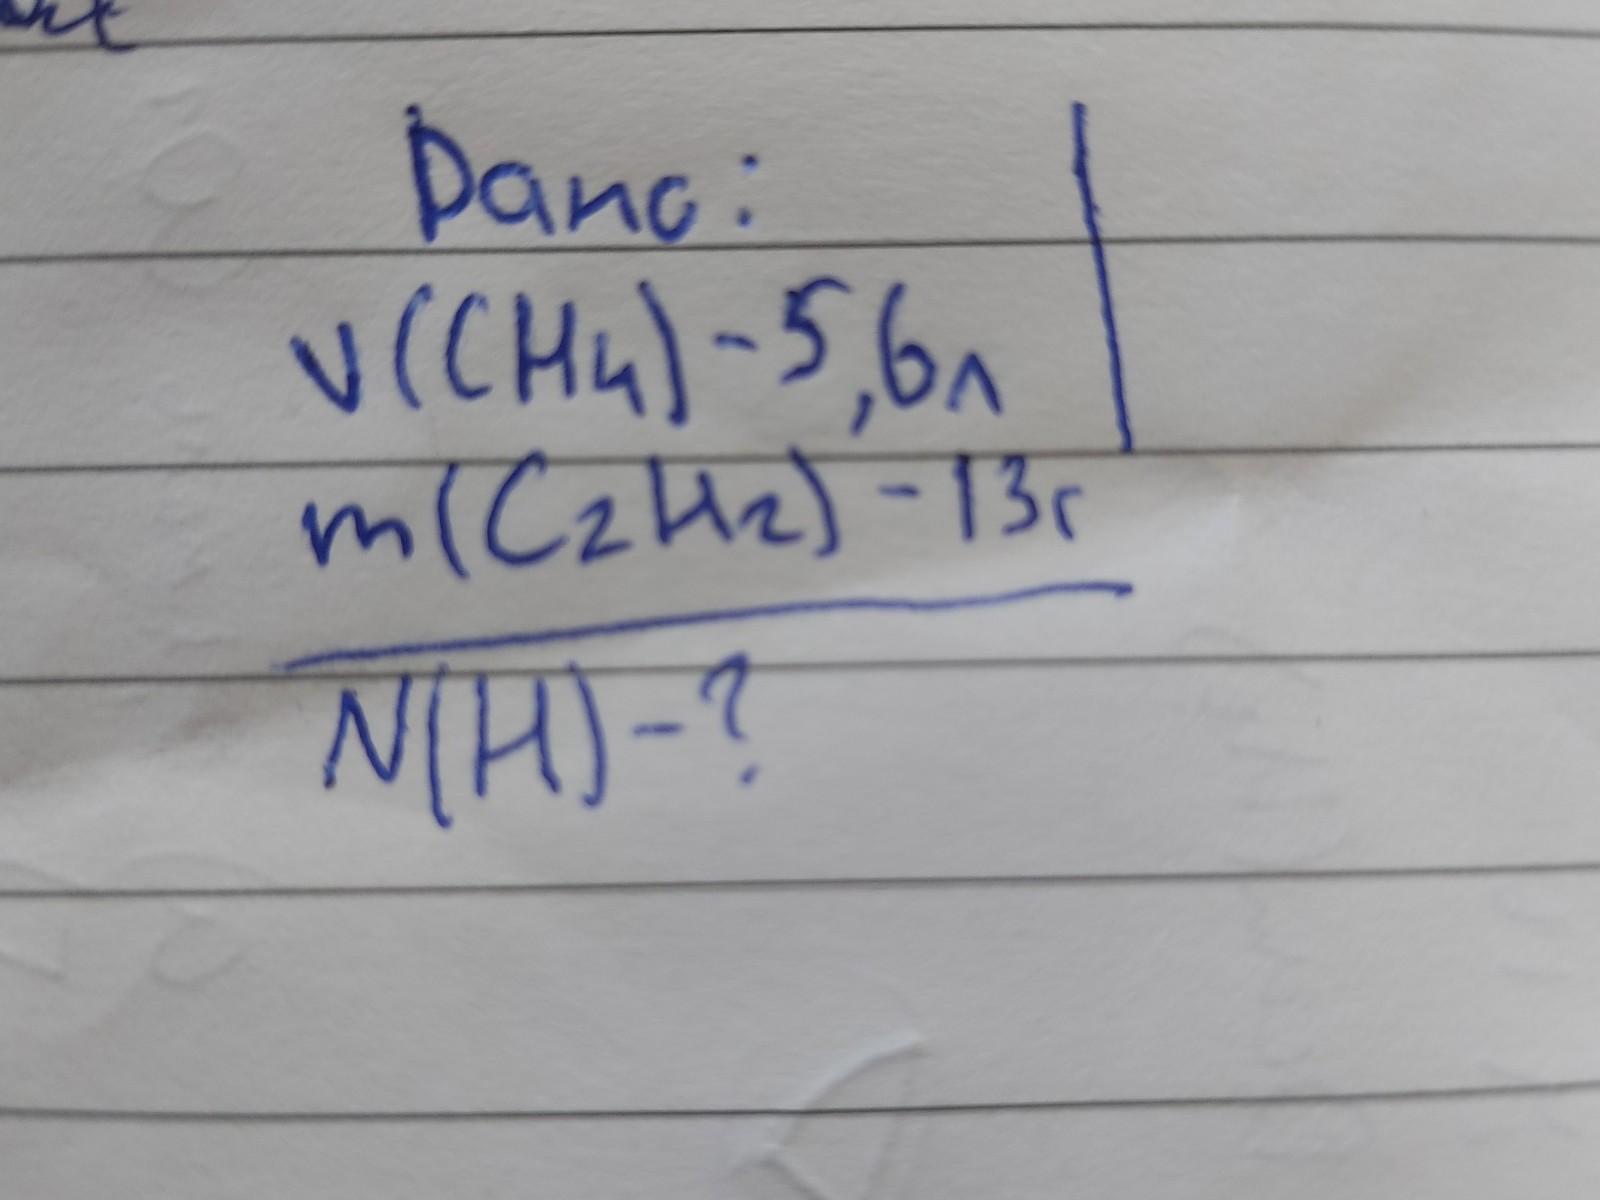 Дано:
V(CH4)-5,6л
m(C2H2)-13г
N(H)-?